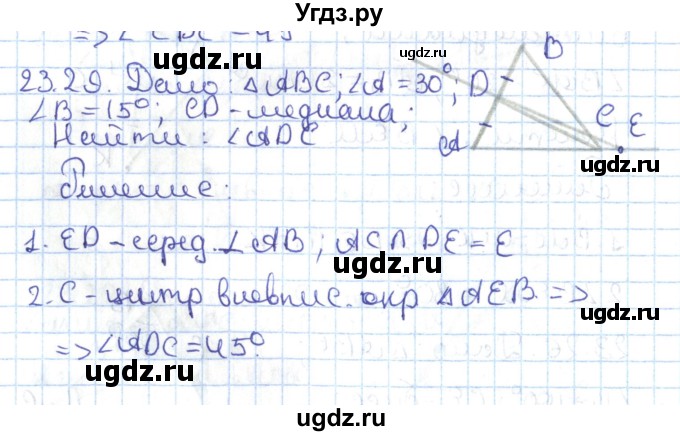 Угдз.ру
=> ∠CDC = 45
23.29. Дано: △ABC; ∠A = 30°; D B
∠B = 15°; CD - медиана; C E
Найти: ∠ADC A
Решение:
1. ED - серед. ⊥ AB; AC ∩ DE = E
2. C - центр вневпис. окр △AEB. =>
=> ∠ADC = 45°.
ugdz.ru
ugdz.ru
ugdz.ru
ugdz.ru
ugdz.ru
ugdz.ru
ugdz.ru
ugdz.ru
ugdz.ru
ugdz.ru